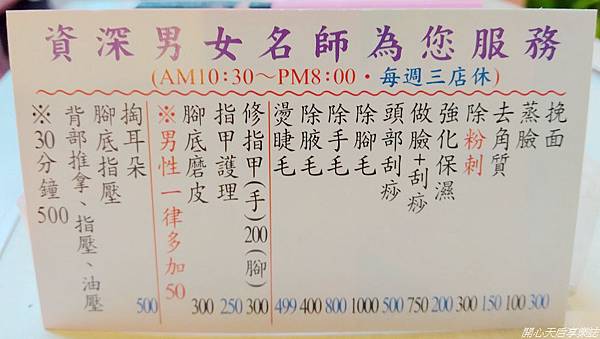 資深男女名師為您服務
(AM10:30～PM8:00・每週三店休)
挽面 300
蒸臉 100
去角質 150
除粉刺 300
強化保濕 200
做臉+刮痧 750
頭部刮痧 500
除腳毛 1000
除手毛 800
除腋毛 400
燙睫毛 499
修指甲(手)200(腳) 300
指甲護理 250
腳底磨皮 300
※男性一律多加50
掏耳朵 500
腳底指壓
背部推拿、指壓、油壓
※30分鐘500
開心天后享樂誌